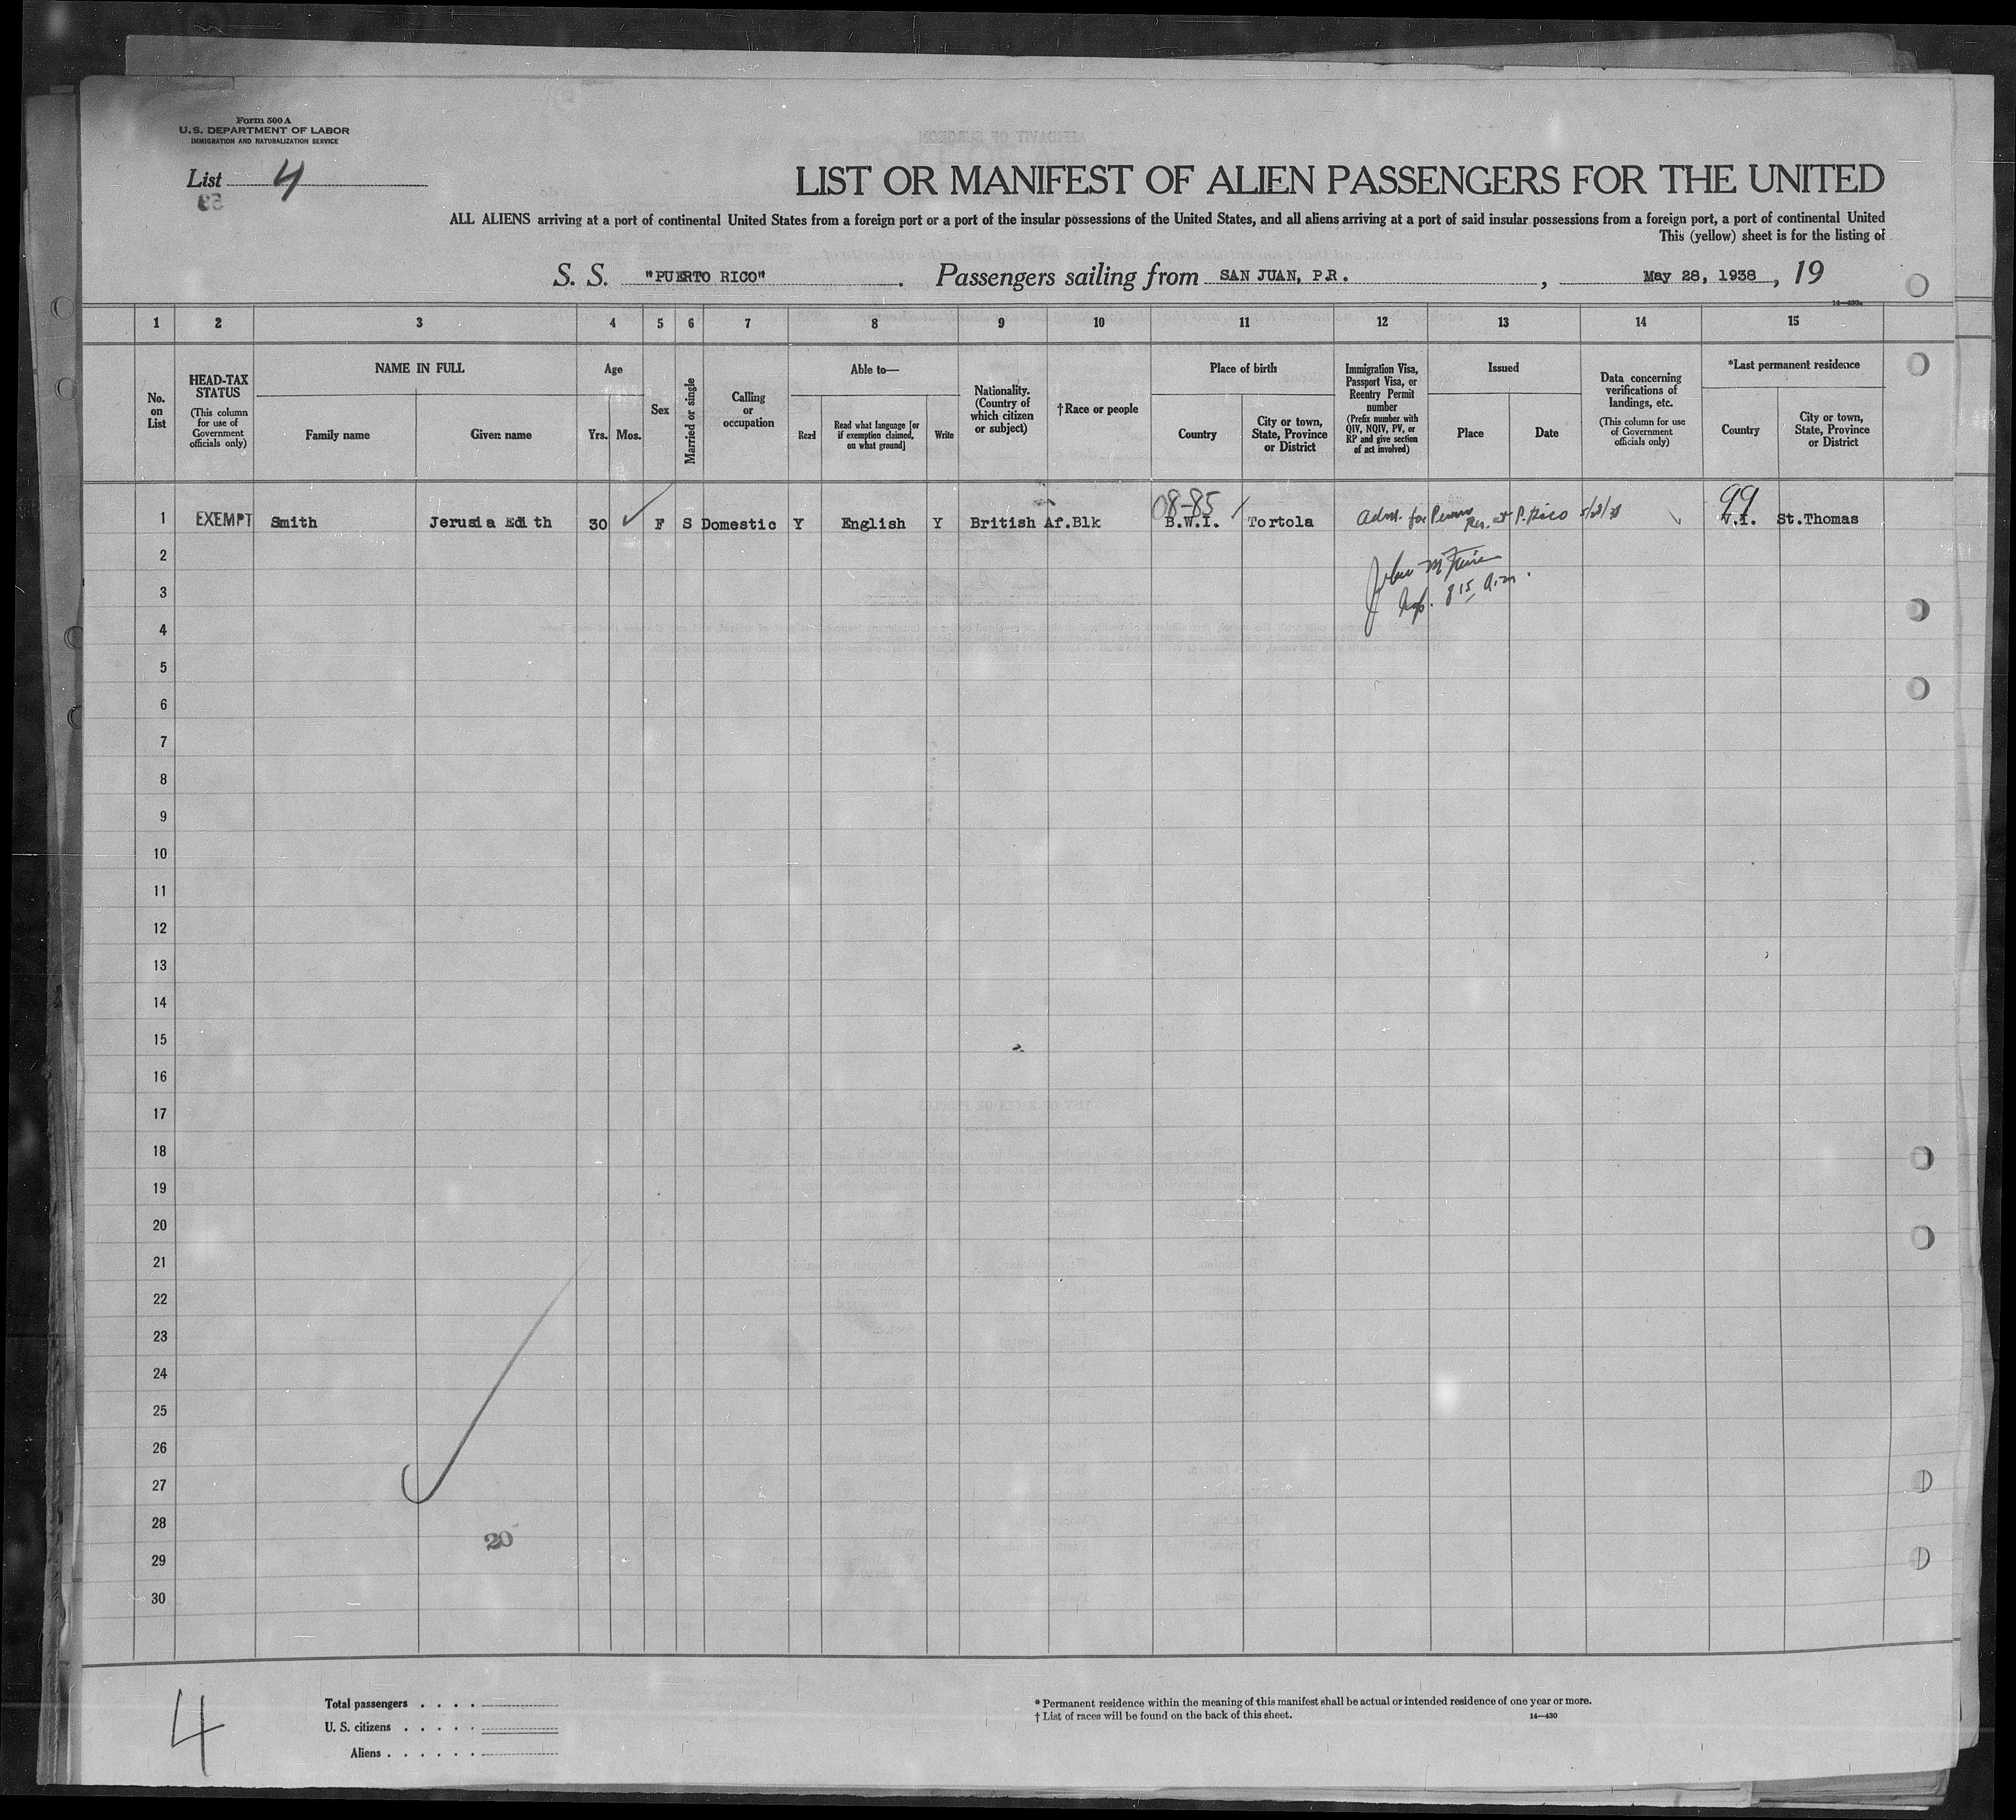 Form 500 A
U.S. DEPARTMENT OF LABOR
IMMIGRATION AND NATURALIZATION SERVICE
List 4
LIST OR MANIFEST OF ALIEN PASSENGERS FOR THE UNITED
ALL ALIENS arriving at a port of continental United States from a foreign port or a port of the insular possessions of the United States, and all aliens arriving at a port of said insular possessions from a foreign port, a port of continental United
This (yellow) sheet is for the listing of
S. S. "PUERTO RICO". Passengers sailing from SAN JUAN, P.R., May 28, 1938, 19
14—430a
1 2 3 4 5 6 7 8 9 10 11 12 13 14 15
No. on List
HEAD-TAX STATUS
(This column for use of Government officials only)
NAME IN FULL
Family name
Given name
Age
Yrs. Mos.
Sex
Married or single
Calling or occupation
Able to—
Read
Read what language [or if exemption claimed, on what ground]
Write
Nationality. (Country of which citizen or subject)
†Race or people
Place of birth
Country
City or town, State, Province or District
Immigration Visa, Passport Visa, or Reentry Permit number
(Prefix number with QIV, NQIV, PV, or RP and give section of act involved)
Issued
Place
Date
Data concerning verifications of landings, etc.
(This column for use of Government officials only)
*Last permanent residence
Country
City or town, State, Province or District
08-85
99
1 EXEMPT Smith Jerusia Edith 30 ✓ F S Domestic Y English Y British Af.Blk B.W.I. / Tortola Adm. for Perm Res. at P. Rico 5/28/38 V.I. St.Thomas
2
John
3
Insp. 8 15 A.m.
4
5
6
7
8
9
10
11
12
13
14
15
16
17
18
19
20
21
22
23
24
25
26
27
28
20
29
30
4
Total passengers . . . .
U. S. citizens . . . . .
Aliens . . . . . .
* Permanent residence within the meaning of this manifest shall be actual or intended residence of one year or more.
† List of races will be found on the back of this sheet.
14—430